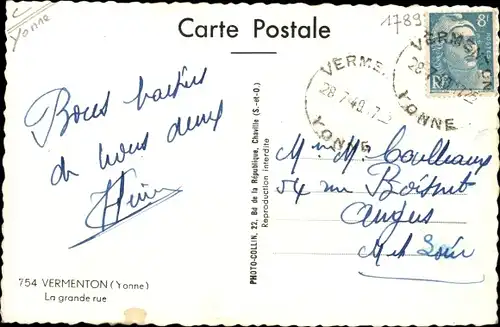 Yonne
Carte Postale
17895
8F
VERME
28-7 49
YONNE
VERMENTON
28-7
YONNE
Bons baisers
de nous deux
754 VERMENTON (Yonne)
La grande rue
PHOTO-COLLIN, 22, Bd de la République, Chaville (S.-et-O.)
Reproduction interdite
M. Mme
54 rue Boisnet
Angers
M et Loire